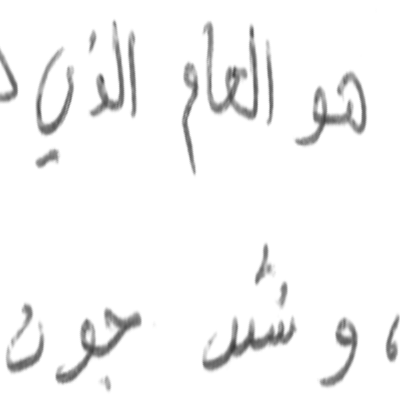 هو العام الذي
، و شس جون